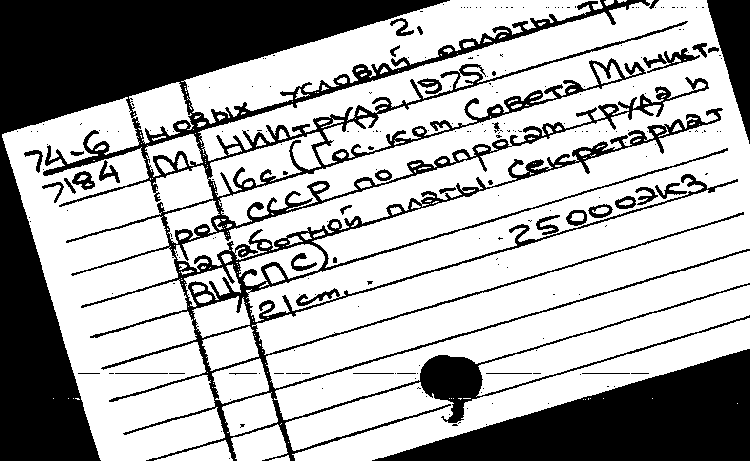 2.
новых условий оплаты тру
74-6
7184
М. НИИтруда, 1975.
16с. (Гос. ком. Совета Минист-
ров СССР по вопросам труда и
заработной платы. Секретариат
ВЦСПС).
21 cm. 25000экз.